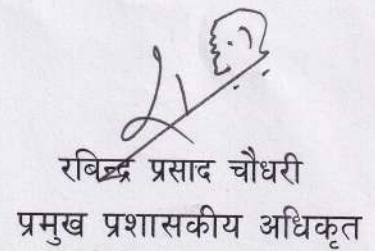 रबिन्द्र प्रसाद चौधरी
प्रमुख प्रशासकीय अधिकृत